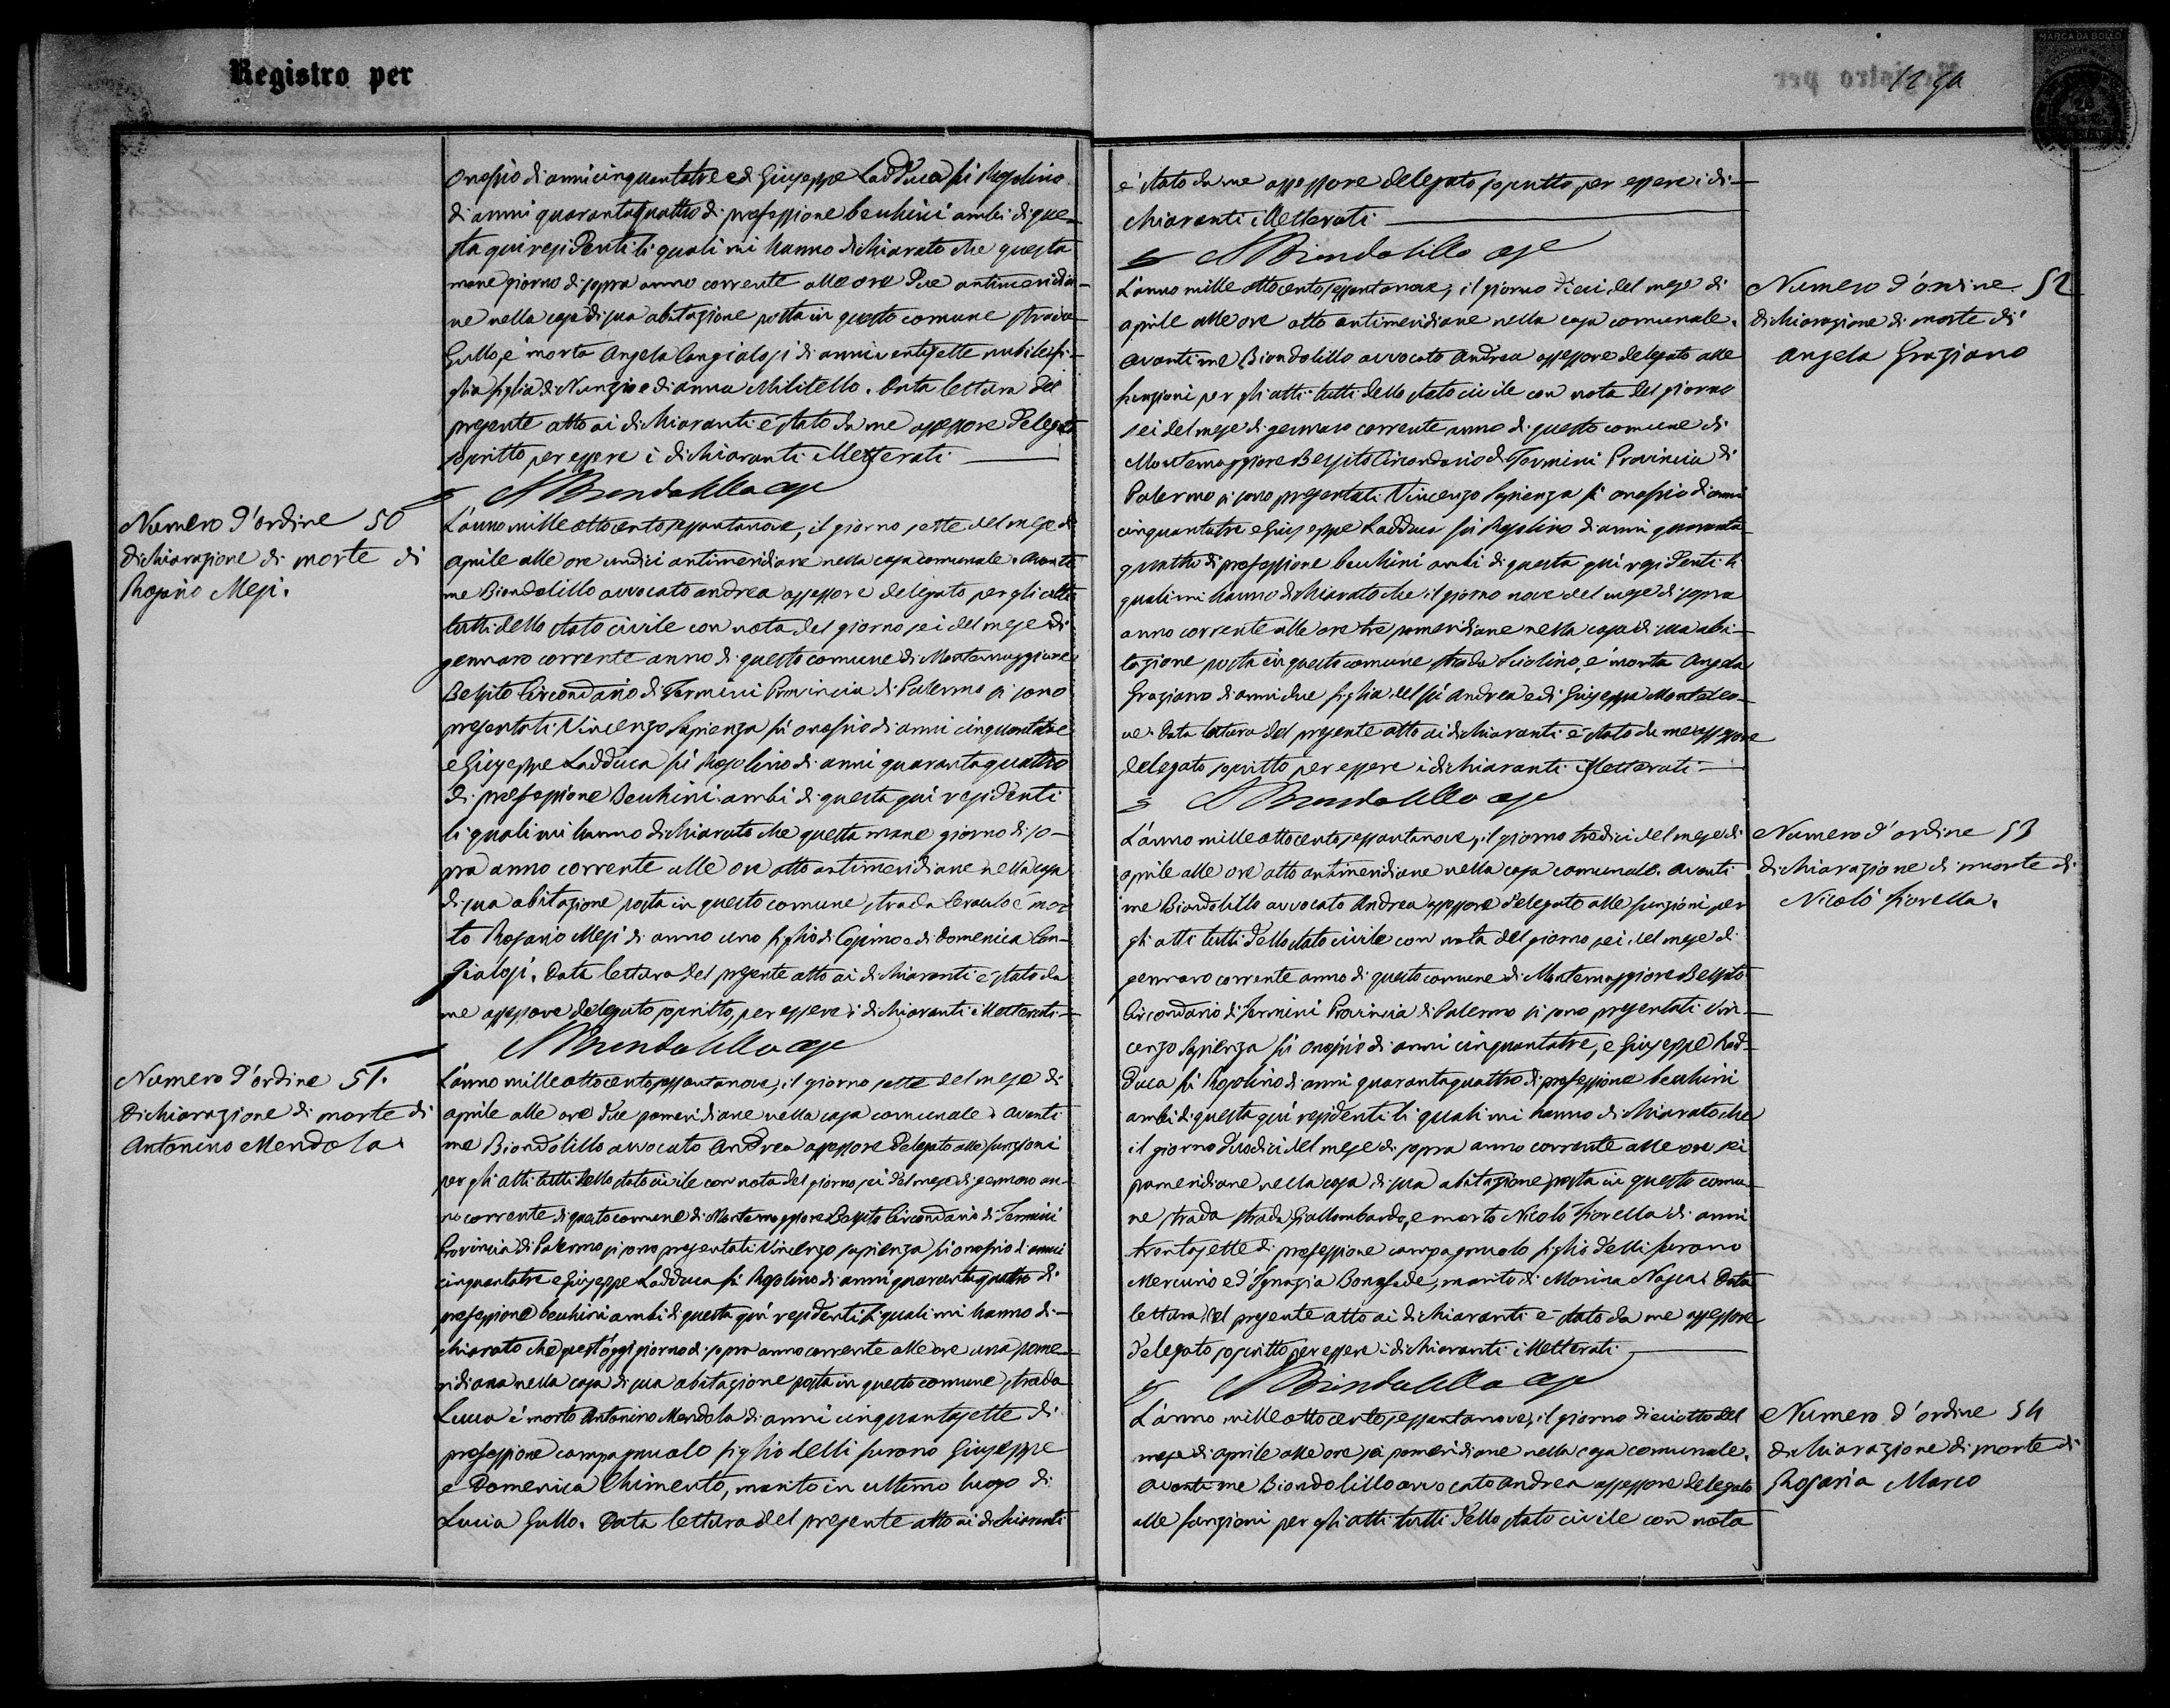 Registro per
Onofrio di anni cinquantatre e di Giuseppe Ladduca fù Agolino
di anni quarantaquattro di professione beuhini ambi di que-
sta qui residenti li quali mi hanno dichiarato che questa
mane giorno di sopra anno corrente alle ore due antimeridia-
ne nella casa di sua abitazione posta in questo comune strada
Gullo, è morta Angela Cangialosi di anni ventisette nubile fi-
glia figlia di Nunzio e di anna Militello. Data lettura del
presente atto ai dichiaranti è stato da me assessore Delegato
soscritto per essere i dichiaranti illetterati
A Biondolillo asse
Numero d'ordine 50
dichiarazione di morte di
Rosario Mesi.
L'anno mille ottocento sessantanove, il giorno sette del mese di
aprile alle ore undici antimeridiane nella casa comunale. Avanti
me Biondolillo avvocato andrea assessore delegato per gli atti
tutti dello stato civile con nota del giorno sei del mese di
gennaro corrente anno di questo comune di Montemaggiore
Belsito Circondario di Termini Provincia di Palermo si sono
presentati Vincenzo Sapienza fù onofrio di anni cinquantatre
e Giuseppe Ladduca fù Agolino di anni quarantaquattro
di professione Beuhini ambi di questa qui residenti
li quali mi hanno dichiarato che questa mane giorno di so-
pra anno corrente alle ore otto antimeridiane nella casa
di sua abitazione posta in questo comune strada è mor
to Rosario Mesi di anno uno figlio di Cosimo e di Domenica Can-
gialosi. Data lettura del presente atto ai dichiaranti è stato da
me assessore delegato soscritto, per essere i dichiaranti illetterati
A Biondolillo asse
Numero d'ordine 51.
Dichiarazione di morte di
Antonino Mendola
L'anno mille ottocento sessantanove, il giorno sette del mese di
aprile alle ore due pomeridiane nella casa comunale. avanti
me Biondolillo avvocato Andrea assessore Delegato alle funzioni
per gli atti tutti dello stato civile con nota del giorno sei del mese di gennaro an-
no corrente di questo comune di Montemaggiore Belsito Circondario di Termini
Provincia di Palermo si sono presentati Vincenzo sapienza fù onofrio di anni
cinquantatre e Giuseppe Ladduca fù Agolino di anni quarantaquattro di
professione beuhini ambi di questa qui residenti li quali mi hanno di-
chiarato che quest'oggi giorno di sopra anno corrente alle ore una pome-
ridiana nella casa di sua abitazione posta in questo comune strada
Lucca è morto Antonino Mendola di anni cinquantasette di
professione campagnuolo figlio delli furono Giuseppe
e Domenica Chimento, marito in ultimo luogo di
Lucia Gullo. Data lettura del presente atto ai dichiaranti
MARCA DA BOLLO
è stato da me assessore delegato soscritto per essere i di-
chiaranti illetterati
A Biondolillo asse
Numero d'ordine 52
dichiarazione di morte di
Angela Graziano
L'anno mille ottocento sessantanove, il giorno dieci del mese di
aprile alle ore otto antimeridiane nella casa comunale.
avanti me Biondolillo avvocato Andrea assessore delegato alle
funzioni per gli atti tutti dello stato civile con nota del giorno
sei del mese di gennaro corrente anno di questo comune di
Montemaggiore Belsito Circondario di Termini Provincia di
Palermo si sono presentati Vincenzo Sapienza fù onofrio di anni
cinquantatre e Giuseppe Ladduca fù Agolino di anni quaranta
quattro di professione beuhini ambi di questa qui residenti li
quali mi hanno dichiarato che il giorno nove del mese di sopra
anno corrente alle ore tre pomeridiane nella casa di sua abi-
tazione posta in questo comune strada Sciolino, è morta Angela
Graziano di anni due figlia del fù Andrea e di Giuseppa Monteleo-
ne. Data lettura del presente atto ai dichiaranti è stato da me assessore
delegato soscritto per essere i dichiaranti illetterati
A Biondolillo asse
Numero d'ordine 53
dichiarazione di morte di
Nicolò Fiorella.
L'anno mille ottocento sessantanove, il giorno tredici del mese di
aprile alle ore otto antimeridiane nella casa comunale. avanti
me Biondolillo avvocato Andrea assessore delegato alle funzioni per
gli atti tutti dello stato civile con nota del giorno sei del mese di
gennaro corrente anno di questo comune di Montemaggiore Belsito
Circondario di Termini Provincia di Palermo si sono presentati Vin-
cenzo Sapienza fù Onofrio di anni cinquantatre, e Giuseppe Lad-
duca fù Agolino di anni quarantaquattro di professione beuhini
ambi di questa qui residenti li quali mi hanno dichiarato che
il giorno dodici del mese di sopra anno corrente alle ore sei
pomeridiane nella casa di sua abitazione posta in questo comu-
ne strada strada Giallombardo, è morto Nicolò Fiorella di anni
trentasette di professione campagnuolo figlio delli furono
Mercurio e d'Ignazia Bonafede, marito di Marina Nasca. Data
lettura del presente atto ai dichiaranti è stato da me assessore
delegato soscritto per essere i dichiaranti illetterati
A Biondolillo asse
Numero d'ordine 54
dichiarazione di morte di
Rosaria Marco
L'anno mille ottocento sessantanove, il giorno dieciotto del
mese di aprile alle ore sei pomeridiane nella casa comunale.
avanti me Biondolillo avvocato Andrea assessore delegato
alle funzioni per gli atti tutti dello stato civile con nota